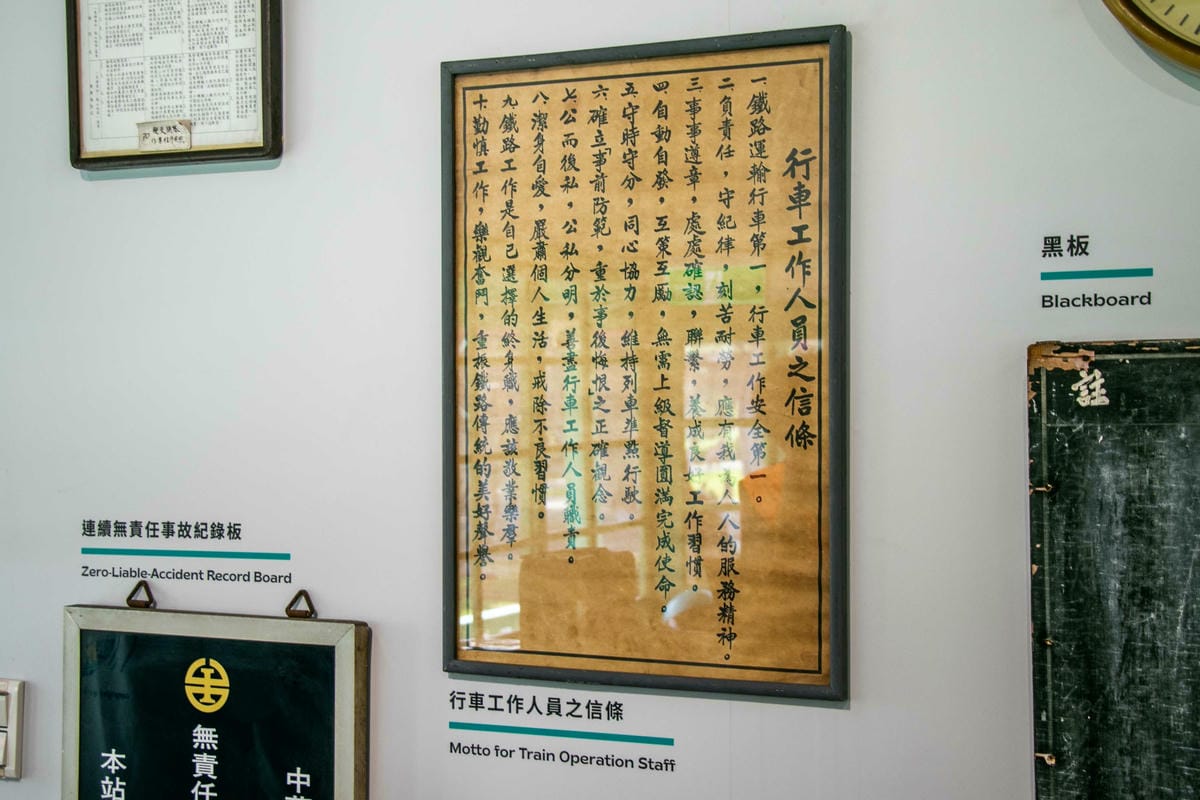 行車工作人員之信條
一、鐵路運輸行車第一，行車工作安全第一。
二、負責任，守紀律，刻苦耐勞，應有我為人人的服務精神。
三、事事遵章，處處確認，聯繫，養成良好工作習慣。
四、自動自發，互策互勵，無需上級督導圓滿完成使命。
五、守時守分，同心協力，維持列車準點行駛。
六、確立「事前防範，重於事後悔恨」之正確觀念。
七、公而後私，公私分明，善盡行車工作人員職責。
八、潔身自愛，嚴肅個人生活，戒除不良習慣。
九、鐵路工作是自己選擇的終身職，應該敬業樂羣。
十、勤慎工作，樂觀奮鬥，重振鐵路傳統的美好聲譽。
行車工作人員之信條
Motto for Train Operation Staff
連續無責任事故紀錄板
Zero-Liable-Accident Record Board
中
無責任
本站
黑板
Blackboard
註